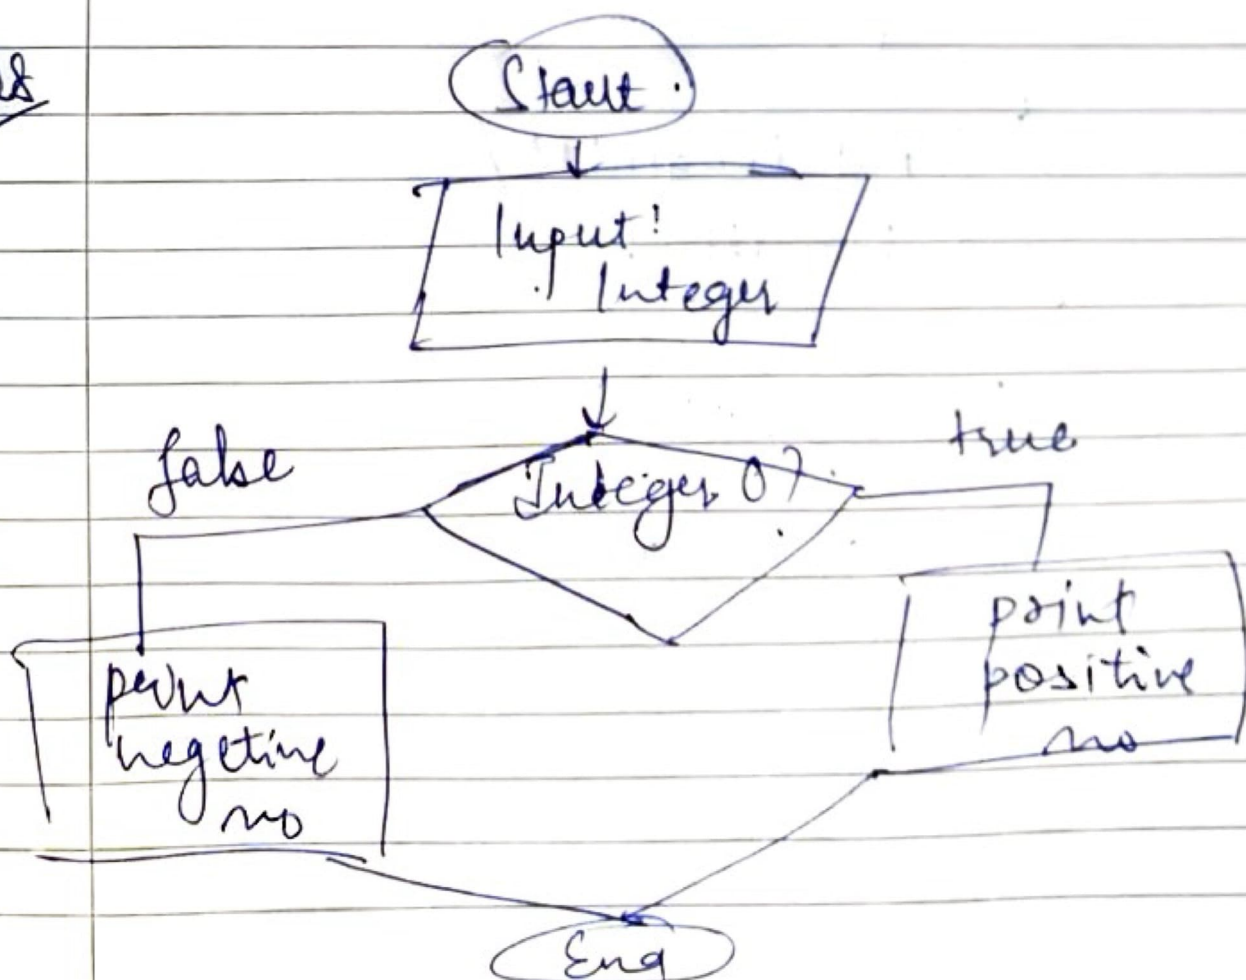 Start
Input!
Integer
false
true
Integer 0?
print
positive
no
print
negetive
no
End